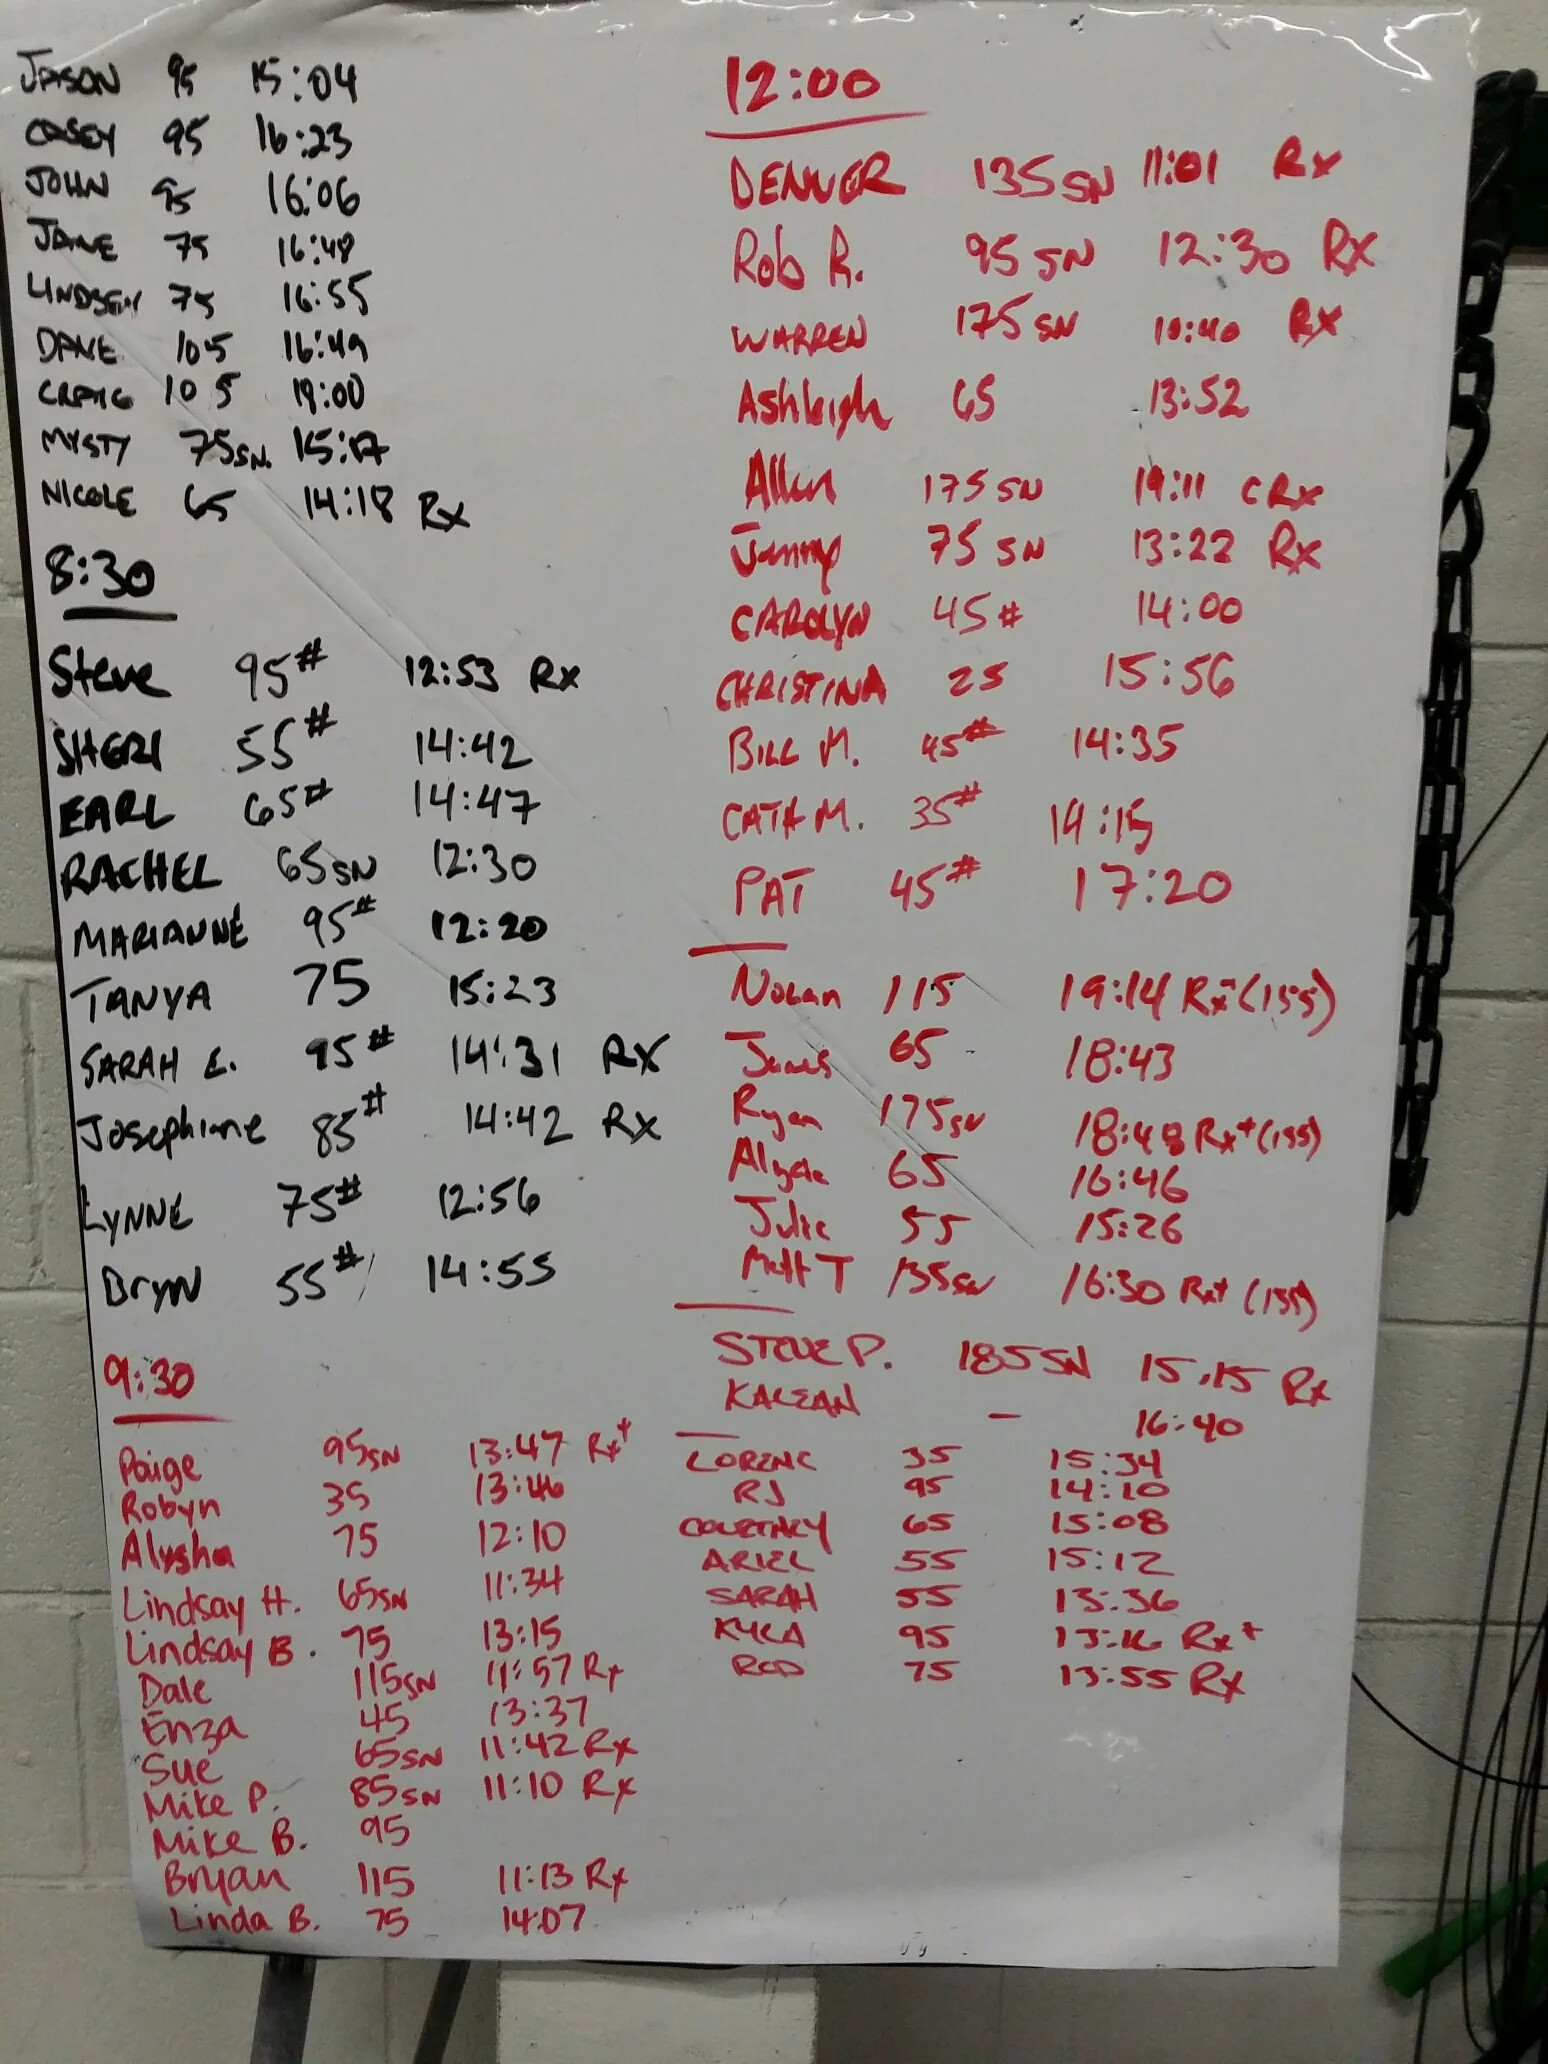 JASON 95 15:04
CASEY 95 16:23
JOHN 95 16:06
JANE 75 16:48
LINDSEY 75 16:55
DANE 105 16:49
CRAIG 105 19:00
MYSTY 75SN. 15:17
NICOLE 65 14:18 Rx
8:30
Steve 95# 12:53 Rx
SHERI 55# 14:42
EARL 65# 14:47
RACHEL 65SN 12:30
MARIANNE 95# 12:20
TANYA 75 15:23
SARAH E. 95# 14:31 RX
Josephine 85# 14:42 RX
LYNNE 75# 12:56
Bryn 55# 14:55
9:30
Paige 95SN 13:47 Rx+
Robyn 35 13:46
Alysha 75 12:10
Lindsay H. 65SN 11:34
Lindsay B. 75 13:15
Dale 115SN 11:57 Rx
Enza 45 13:37
Sue 65SN 11:42 Rx
Mike P. 85SN 11:10 Rx
Mike B. 95
Bryan 115 11:13 Rx
Linda B. 75 14:07
12:00
DENVER 135SN 11:01 Rx
Rob R. 95 SN 12:30 Rx
WARREN 175 SN 10:40 Rx
Ashleigh 65 13:52
Allen 175 SN 19:11 CRx
75 SN 13:22 Rx
CAROLYN 45# 14:00
CHRISTINA 25 15:56
BILL M. 45# 14:35
CATH M. 35# 14:15
PAT 45# 17:20
Nolan 115 19:14 Rx+(155)
James 65 18:43
Ryan 175SN 18:48 Rx+(155)
65 16:46
Julie 55 15:26
Matt T 135SN 16:30 Rx+ (155)
STEVE P. 185SN 15:15 Rx
KALEAN - 16:40
35 15:34
RJ 95 14:10
COURTNEY 65 15:08
ARIEL 55 15:12
SARAH 55 13:36
KYLA 95 13:16 Rx+
ROD 75 13:55 Rx